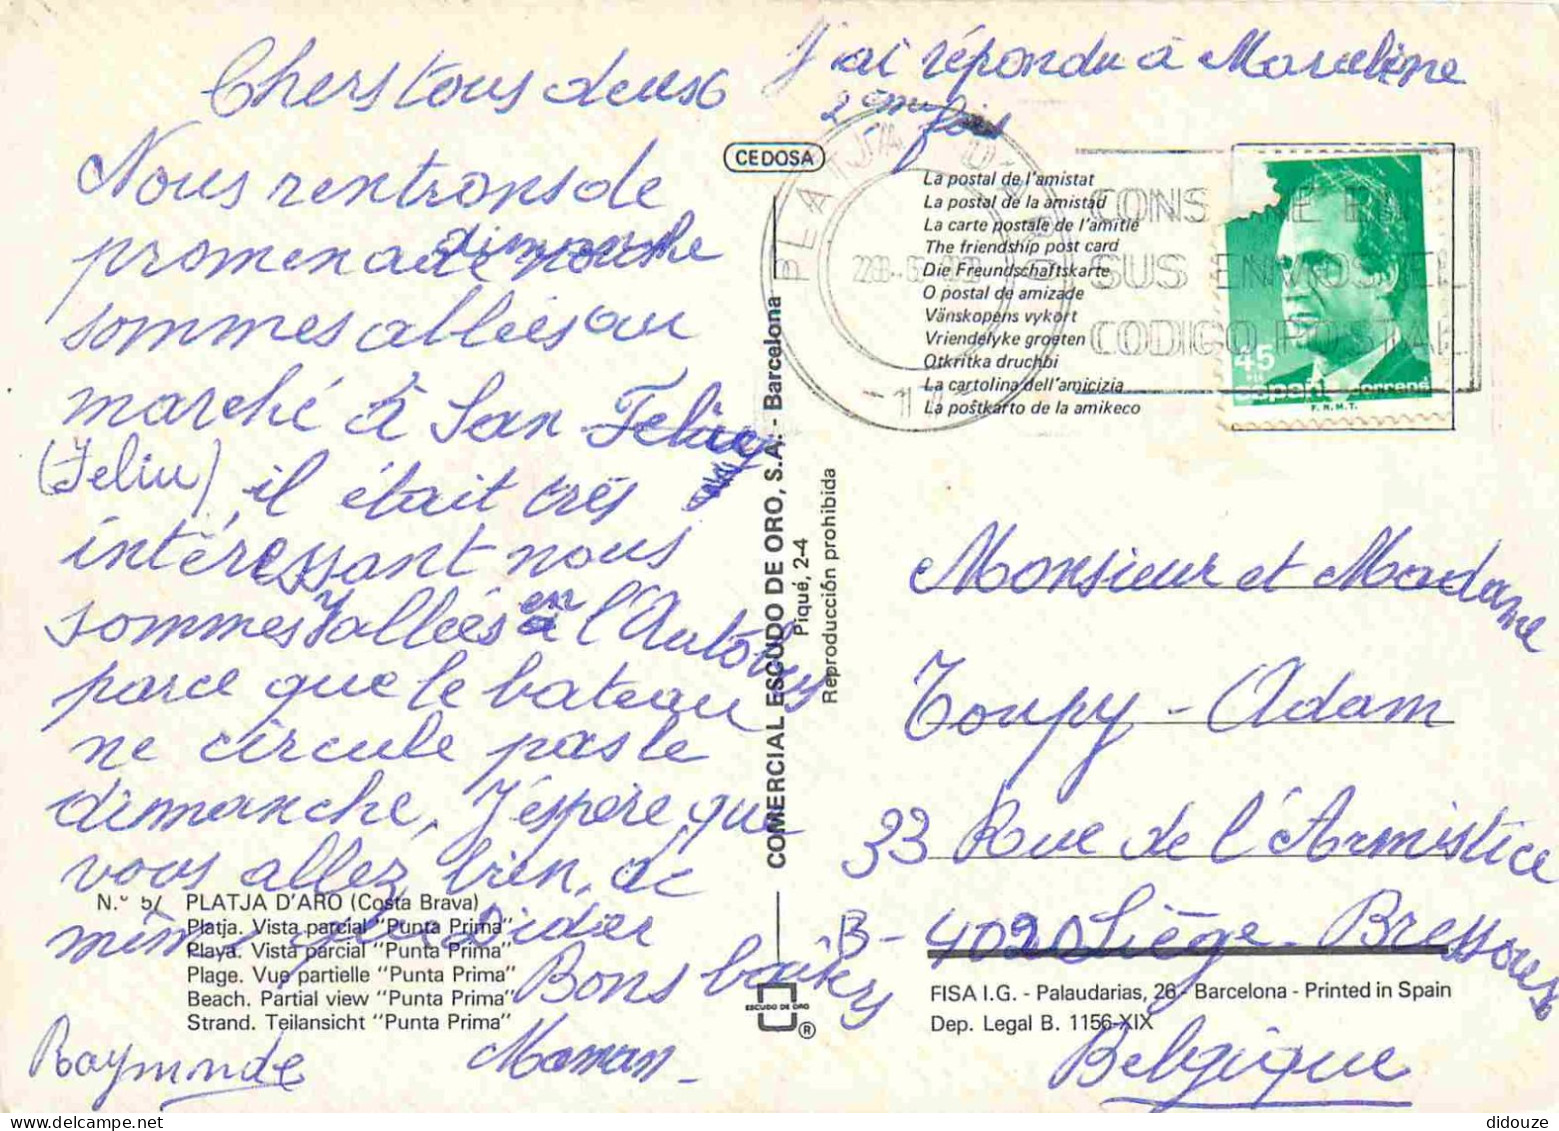 J'ai répondu à Marcelinne
2ème fois
Chers tous deux
Nous rentrons de
promenade dimanche nous
sommes allées au
marché à San Feliu
(Feliu), il était très
intéressant nous
sommes y allées en l'Autobus
parce que le bateau
ne circule pas le
dimanche, J'éspère que
vous allez bien, de
même Didier
Bons baisers
Raymonde
Maman
N.º 57 PLATJA D'ARO (Costa Brava)
Platja. Vista parcial "Punta Prima"
Playa. Vista parcial "Punta Prima"
Plage. Vue partielle "Punta Prima"
Beach. Partial view "Punta Prima"
Strand. Teilansicht "Punta Prima"
COMERCIAL ESCUDO DE ORO, S.A. - Barcelona
Piqué, 2-4
Reproducción prohibida
ESCUDO DE ORO
®
CEDOSA
La postal de l'amistat
La postal de la amistad
La carte postale de l'amitié
The friendship post card
Die Freundschaftskarte
O postal de amizade
Vänskopens vykort
Vriendelyke groeten
Otkritka druchbi
La cartolina dell'amicizia
La poŝtkarto de la amikeco
PLATJA D'ARO
CONSIGNE EN
SUS ENVIOS EL
CODIGO POSTAL
45
España correos
F.N.M.T.
Monsieur et Madame
Toupy - Adam
33 Rue de l'Armistice
B - 4020 Liège - Bressoux
Belgique
FISA I.G. - Palaudarias, 26 - Barcelona - Printed in Spain
Dep. Legal B. 1156-XIX
didouze